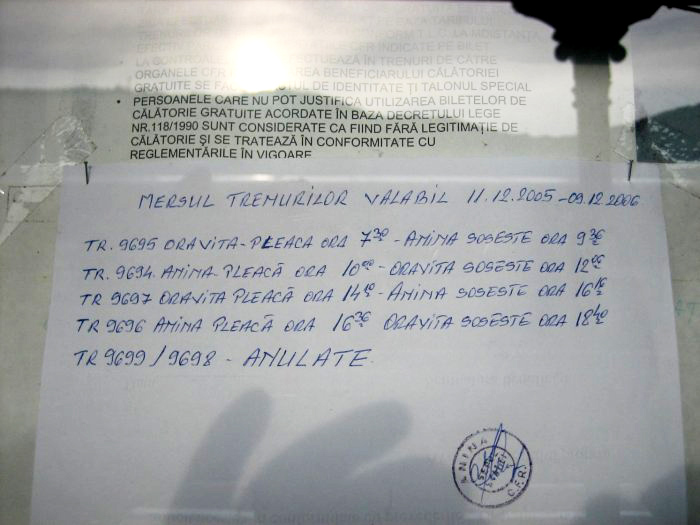 ORGANELE CFR
CĂLĂTORIEI
GRATUITE SE
DE IDENTITATE ȚI TALONUL SPECIAL
• PERSOANELE CARE NU POT JUSTIFICA UTILIZAREA BILETELOR DE
CĂLĂTORIE GRATUITE ACORDATE ÎN BAZA DECRETULUI LEGE
NR.118/1990 SUNT CONSIDERATE CA FIIND FĂRĂ LEGITIMAȚIE DE
CĂLĂTORIE ȘI SE TRATEAZĂ ÎN CONFORMITATE CU
REGLEMENTĂRILE ÎN VIGOARE
MERSUL TRENURILOR VALABIL 11.12.2005-09.12.2006
TR. 9695 ORAVITA-PLEACA ORA 7 30 - ANINA SOSESTE ORA 9 36
TR. 9694 ANINA-PLEACĂ ORA 10 00 - ORAVITA SOSESTE ORA 12 06
TR 9697 ORAVITA PLEACĂ ORA 14 10 - ANINA SOSESTE ORA 16 16
TR 9696 ANINA PLEACĂ ORA 16 36 ORAVITA SOSESTE ORA 18 40
TR 9699/9698 - ANULATE.
ANINA
C.F.R.